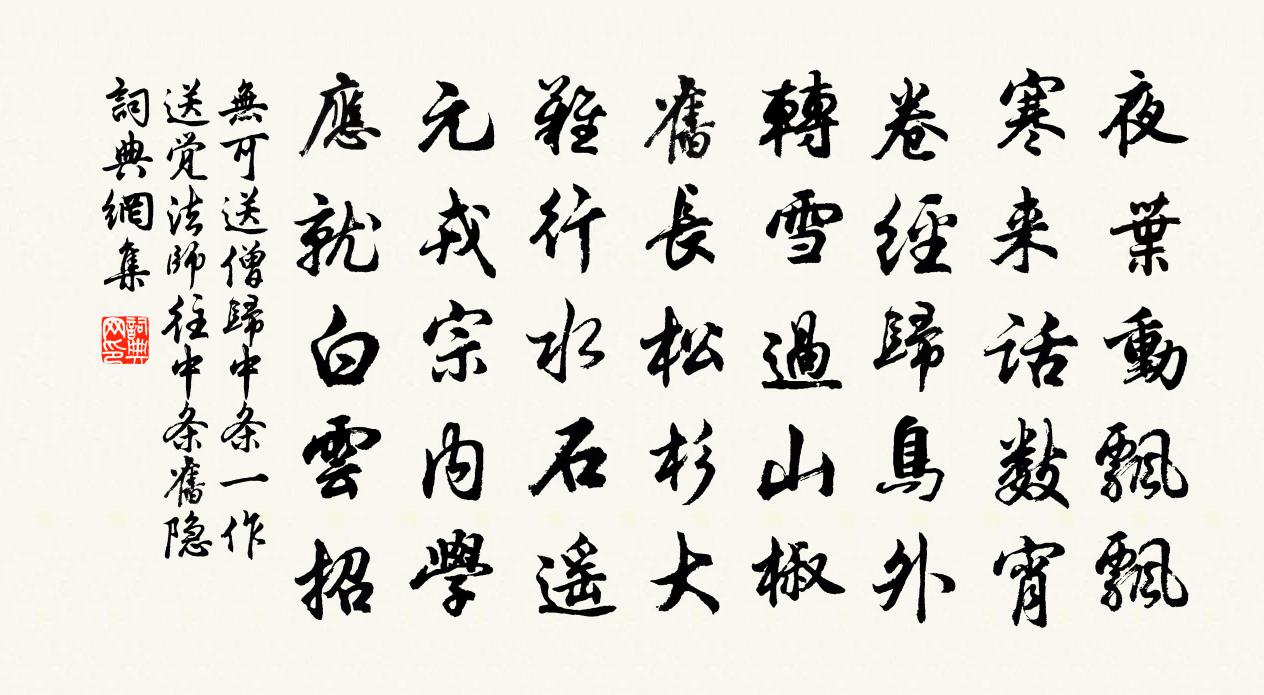 夜葉動飄飄
寒来话數宵
卷經歸鳥外
轉雪過山椒
舊長松杉大
難行水石遥
元戎宗内學
應就白雲招
無可送僧歸中条一作
送覚法師往中条舊隐
詞典網集
詞典网印